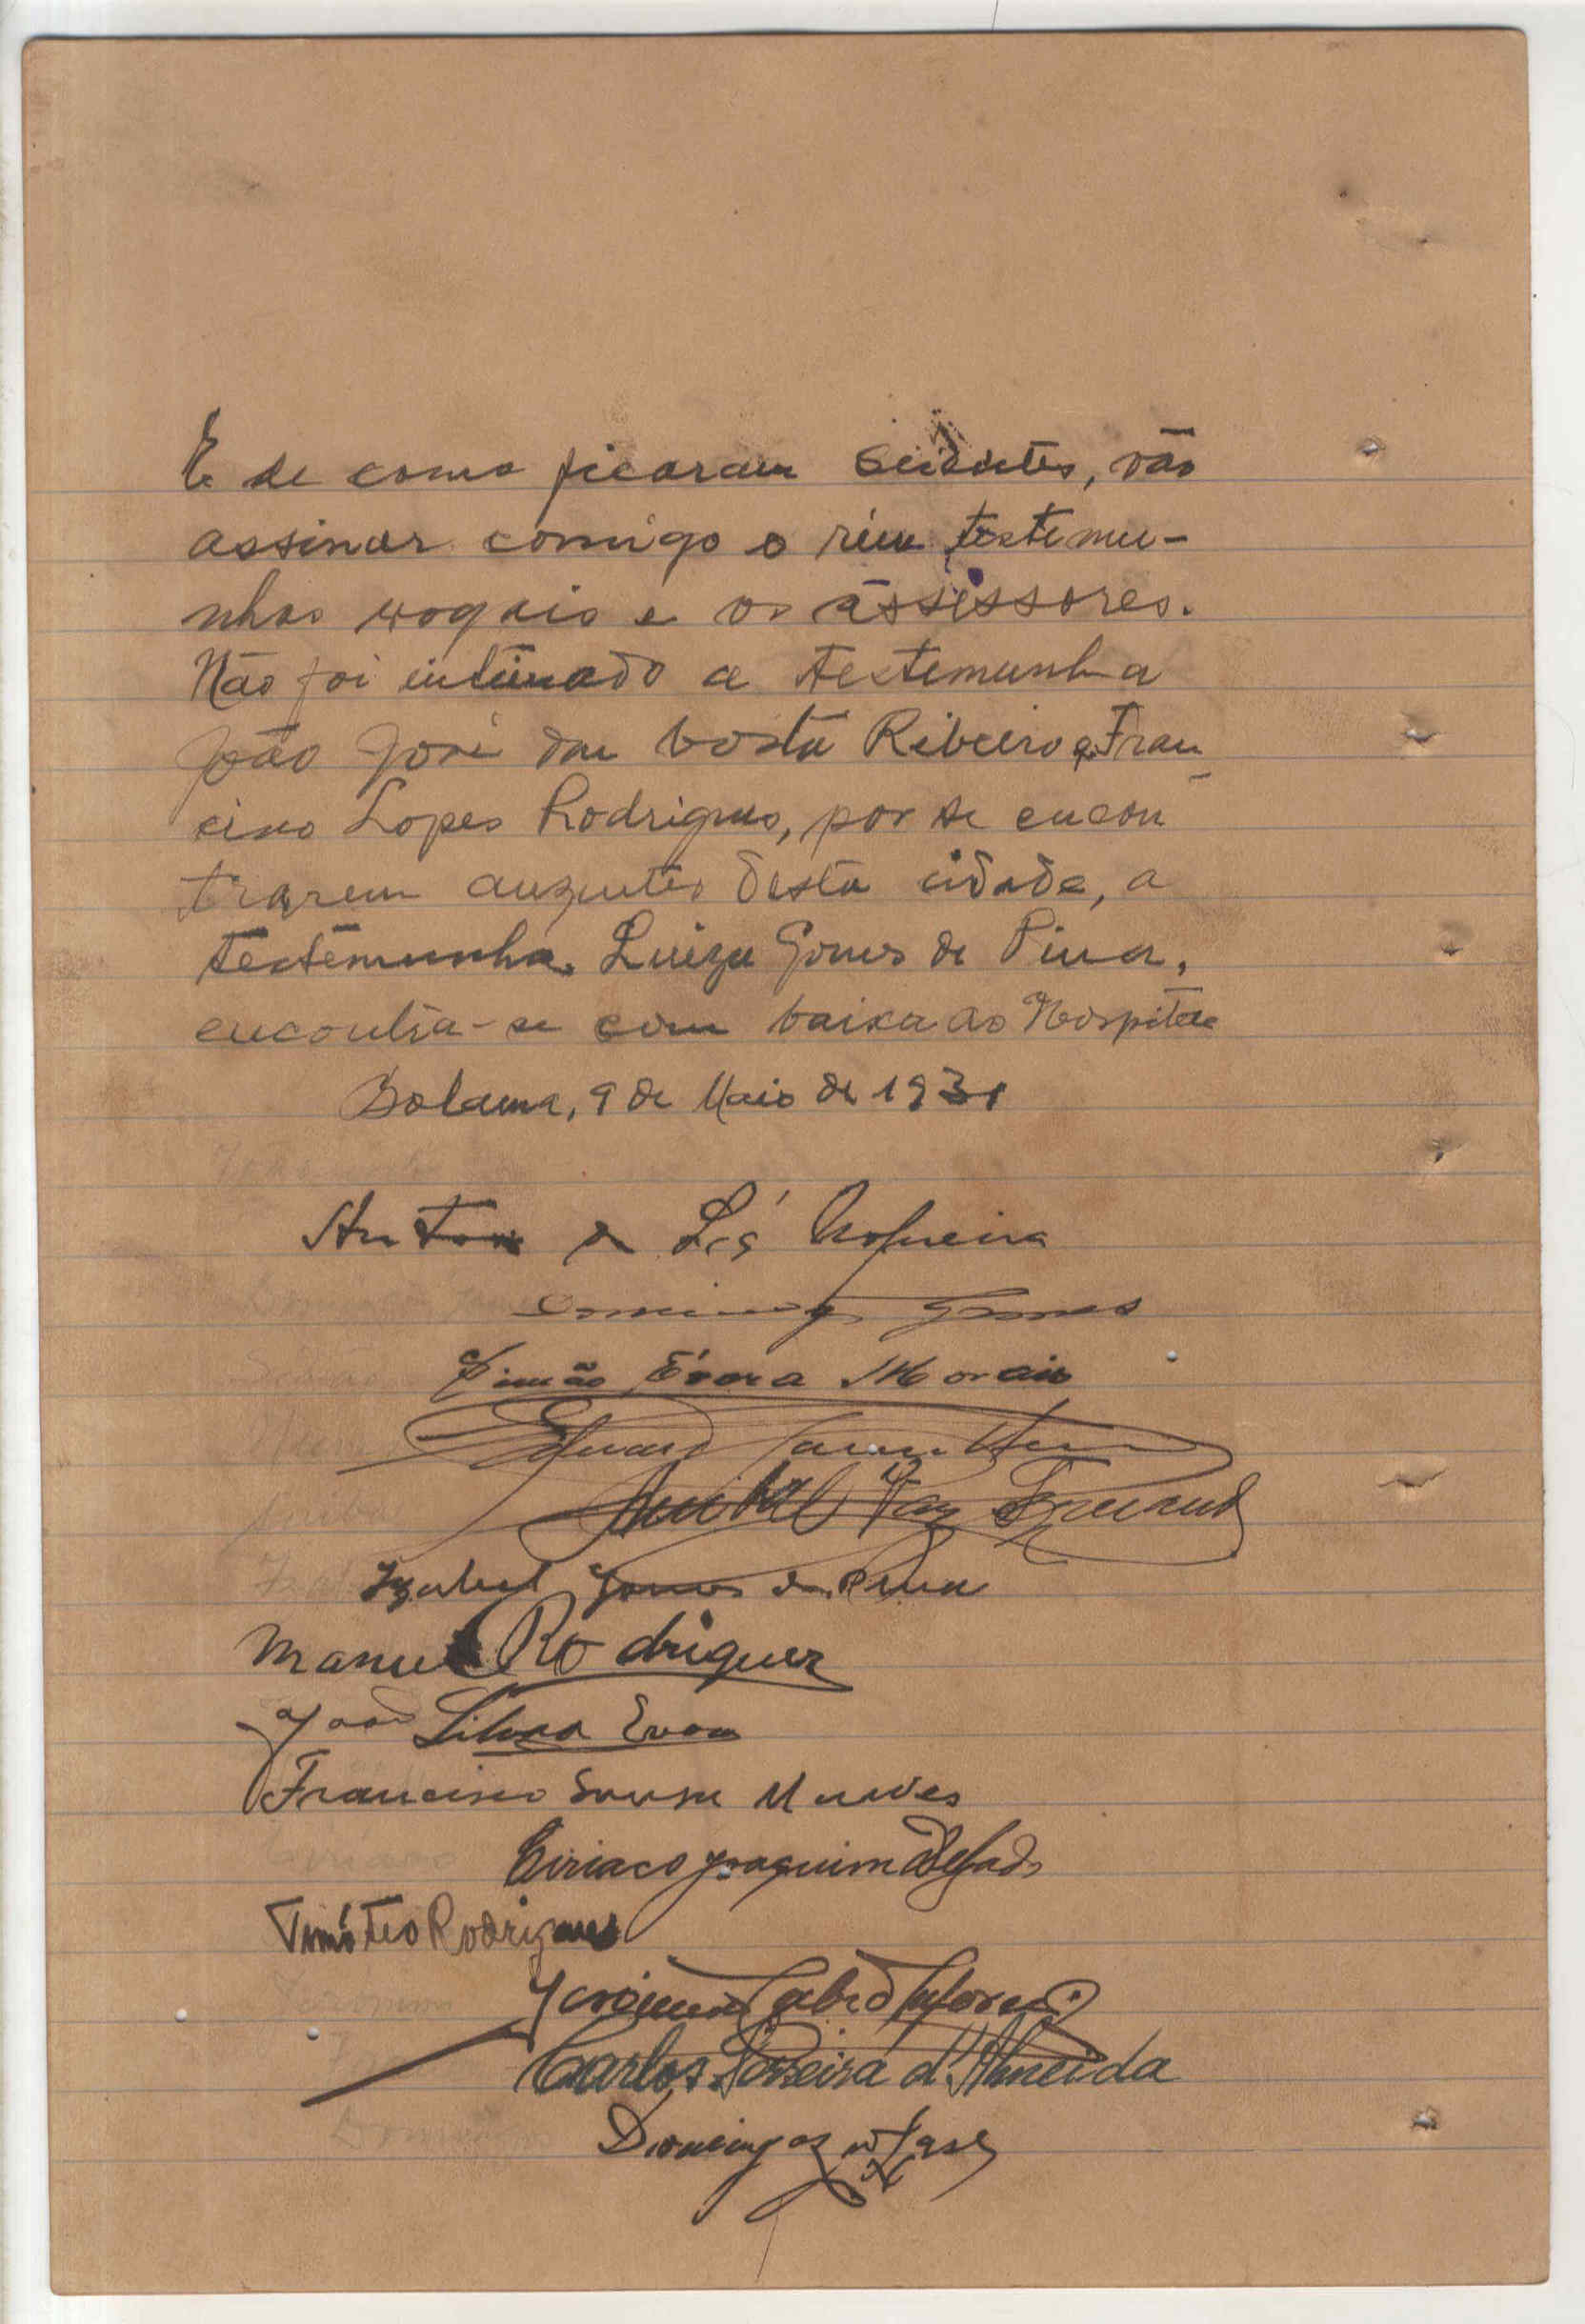 E de como ficaram scientes, vão
assinar comigo o réu testemu-
nhas vogais e os assessores.
Não foi intimado a testemunha
João José da Costa Ribeiro e Fran
cisco Lopes Rodrigues, por se encon
trarem auzentes desta cidade, a
testemunha Luiza Gomes de Pina,
encontra-se com baixa ao Hospital
Bolama, 9 de Maio de 1931
de Sá Nogueira
Domingos Gomes
Simão Évora Morais
Eduard
Anibal Paz
Izabel Gomes de Pina
Manuel Rodriguez
João Silva Evora
Francisco Sousa
Ciriaco Joaquim
Timóteo Rodrigues
Carlos Pereira d'Almeida
Domingos